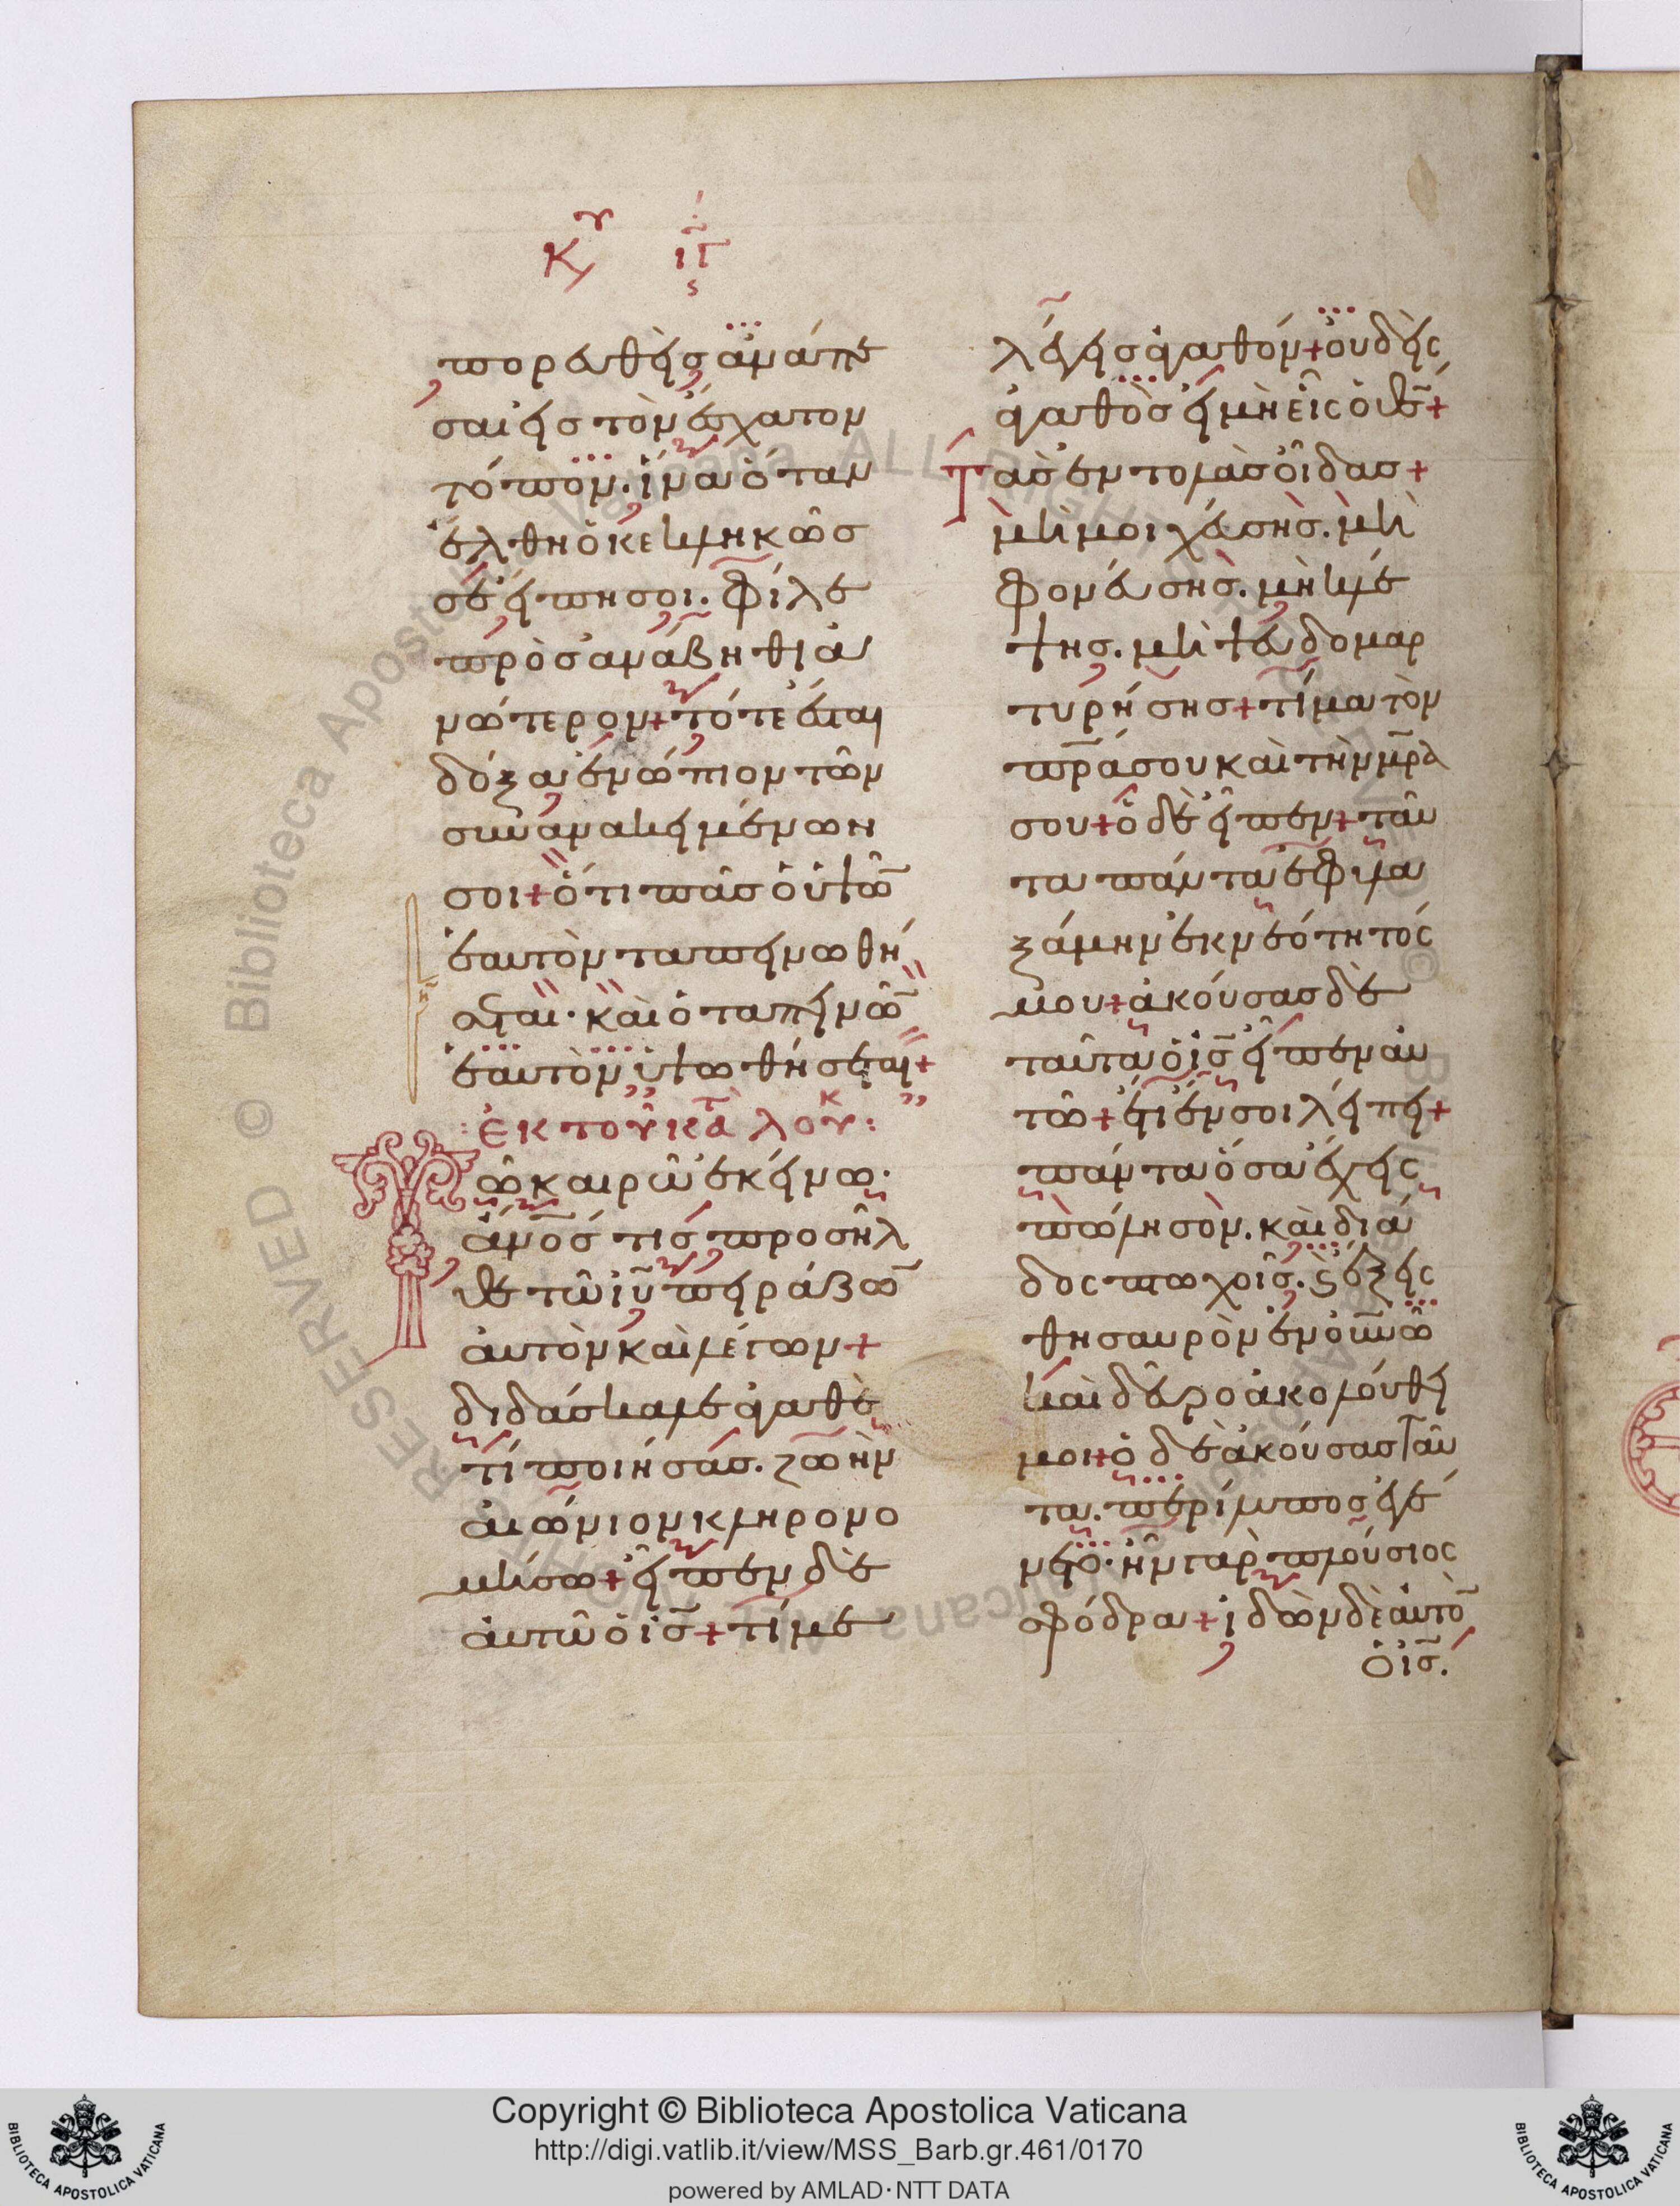 Κυ ιγ
πορευθεὶς ἀνάπε
σαι εἰς τὸν ἔσχατον
τόπον. ἵνα ὅταν
ἔλθη ὁ κεκληκώς
σε εἴπη σοι. φίλε
προσανάβηθι ἀ
νώτερον + τότε ἔσται
δόξα ἐνώπιον τῶν
συνανακειμένων
σοι + ὅτι πᾶς ὁ ὑψῶ̅
ἑαυτὸν ταπεινωθή
σεται· καὶ ὁ ταπεινῶ̅
ἑαυτὸν ὑψωθήσεται +
ἐκ τοῦ κατὰ λουκ:
Τῶ καιρῶ ἐκείνω·
ἀν̅ο̅ς τις προσῆλ
θε τῶ ι̅υ̅ πειράζω̅
αὐτὸν καὶ λέγων +
διδάσκαλε ἀγαθὲ
τί ποιήσας. ζωὴν
αἰώνιον κληρονο
μήσω + εἶπεν δὲ
αὐτῶ ὁ ι̅ς̅ + τί με
λέγεις ἀγαθόν + οὐδεὶς
ἀγαθὸς εἰ μὴ εἷς ὁ θ̅ς̅ +
Τὰς ἐντολὰς οἶδας +
μὴ μοιχεύσης. μὴ
φονεύσης. μὴ κλέ
ψης. μὴ ψευδομαρ
τυρήσης + τίμα τὸν
π̅ρ̅α̅ σου καὶ τὴν μ̅ρ̅α̅
σου + ὁ δὲ εἶπεν + ταῦ
τα πάντα ἐφυλα
ξάμην ἐκ νεότητός
μου + ἀκούσας δὲ
ταῦτα ὁ ι̅ς̅ εἶπεν αὐ
τῶ + ἔτι ἕν σοι λείπει +
πάντα ὅσα ἔχεις
πώλησον. καὶ διά
δος πτωχοῖς. ϗ ἕξεις
θησαυρὸν ἐν ο̅υ̅ν̅ω̅
καὶ δεῦρο ἀκολούθει
μοι + ὁ δὲ ἀκούσας ταῦ
τα. περίλυπος ἐγέ
νετο· ἦν γὰρ πλούσιος
σφόδρα + ἰδὼν δὲ αὐτὸ̅
ὁ ι̅ς̅.
Copyright © Biblioteca Apostolica Vaticana
http://digi.vatlib.it/view/MSS_Barb.gr.461/0170
powered by AMLAD·NTT DATA